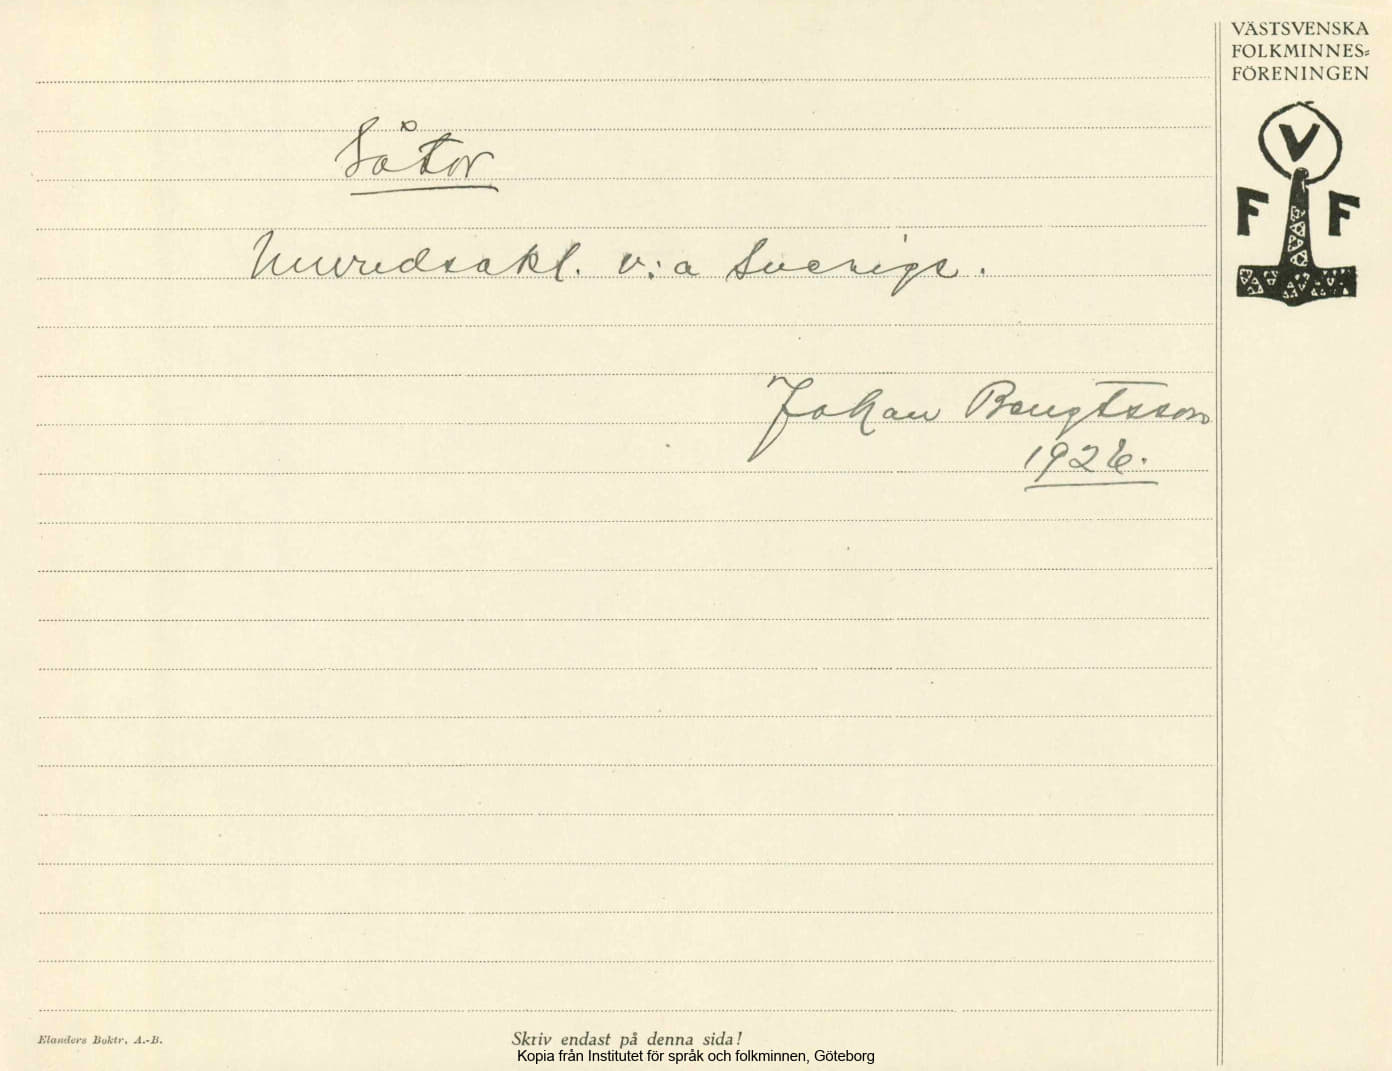 VÄSTSVENSKA
FOLKMINNES-
FÖRENINGEN
V
F F
Låtor
Huvudsakl. v:a Sverige.
Johan Bengtsson
1926.
Elanders Boktr. A.-B.
Skriv endast på denna sida!
Kopia från Institutet för språk och folkminnen, Göteborg